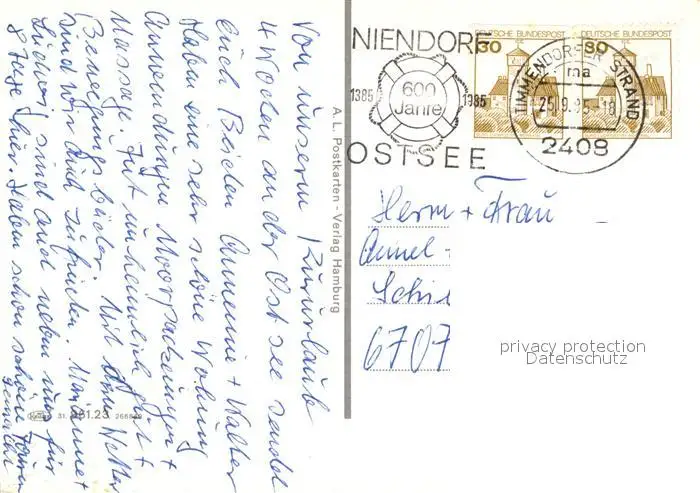 Von unserm Kurlaub
4 Wochen an der Ostsee sendet
Euch Beiden Annemie + Walter
Haben eine sehr schöne Wohnung
Anwendungen Moorpackungen +
Massage. Tut unheimlich gut +
Bewegungsbäder. Mit dem Wetter
sind wir auch zufrieden. Marianne +
Ludwig sind auch neben uns für
8 Tage hier. Haben schon schöne Touren
gemacht
A. L. Postkarten - Verlag Hamburg
31. 961.23
NIENDORF
1385 600 Jahre 1985
OSTSEE
DEUTSCHE BUNDESPOST
30
DEUTSCHE BUNDESPOST
30
TIMMENDORFER STRAND
ma
25.9.85-18
2408
Herrn + Frau
Schi
6707
privacy protection
Datenschutz